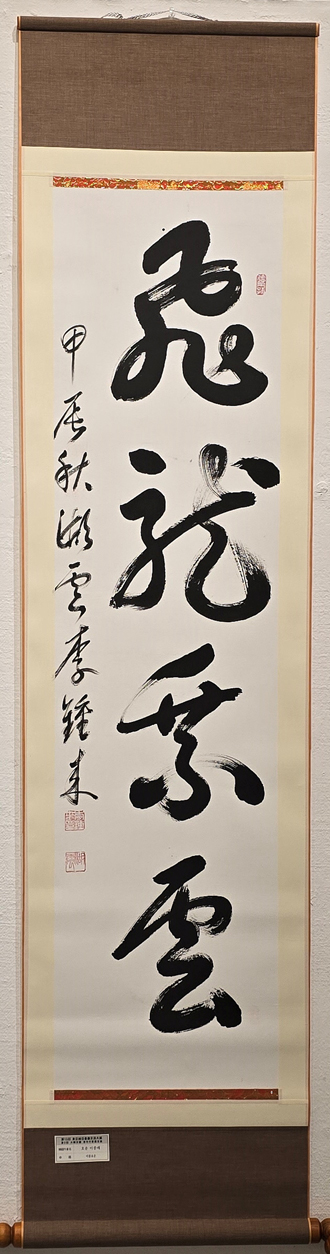 飛龍乘雲
甲辰秋 湖雲 李鍾来